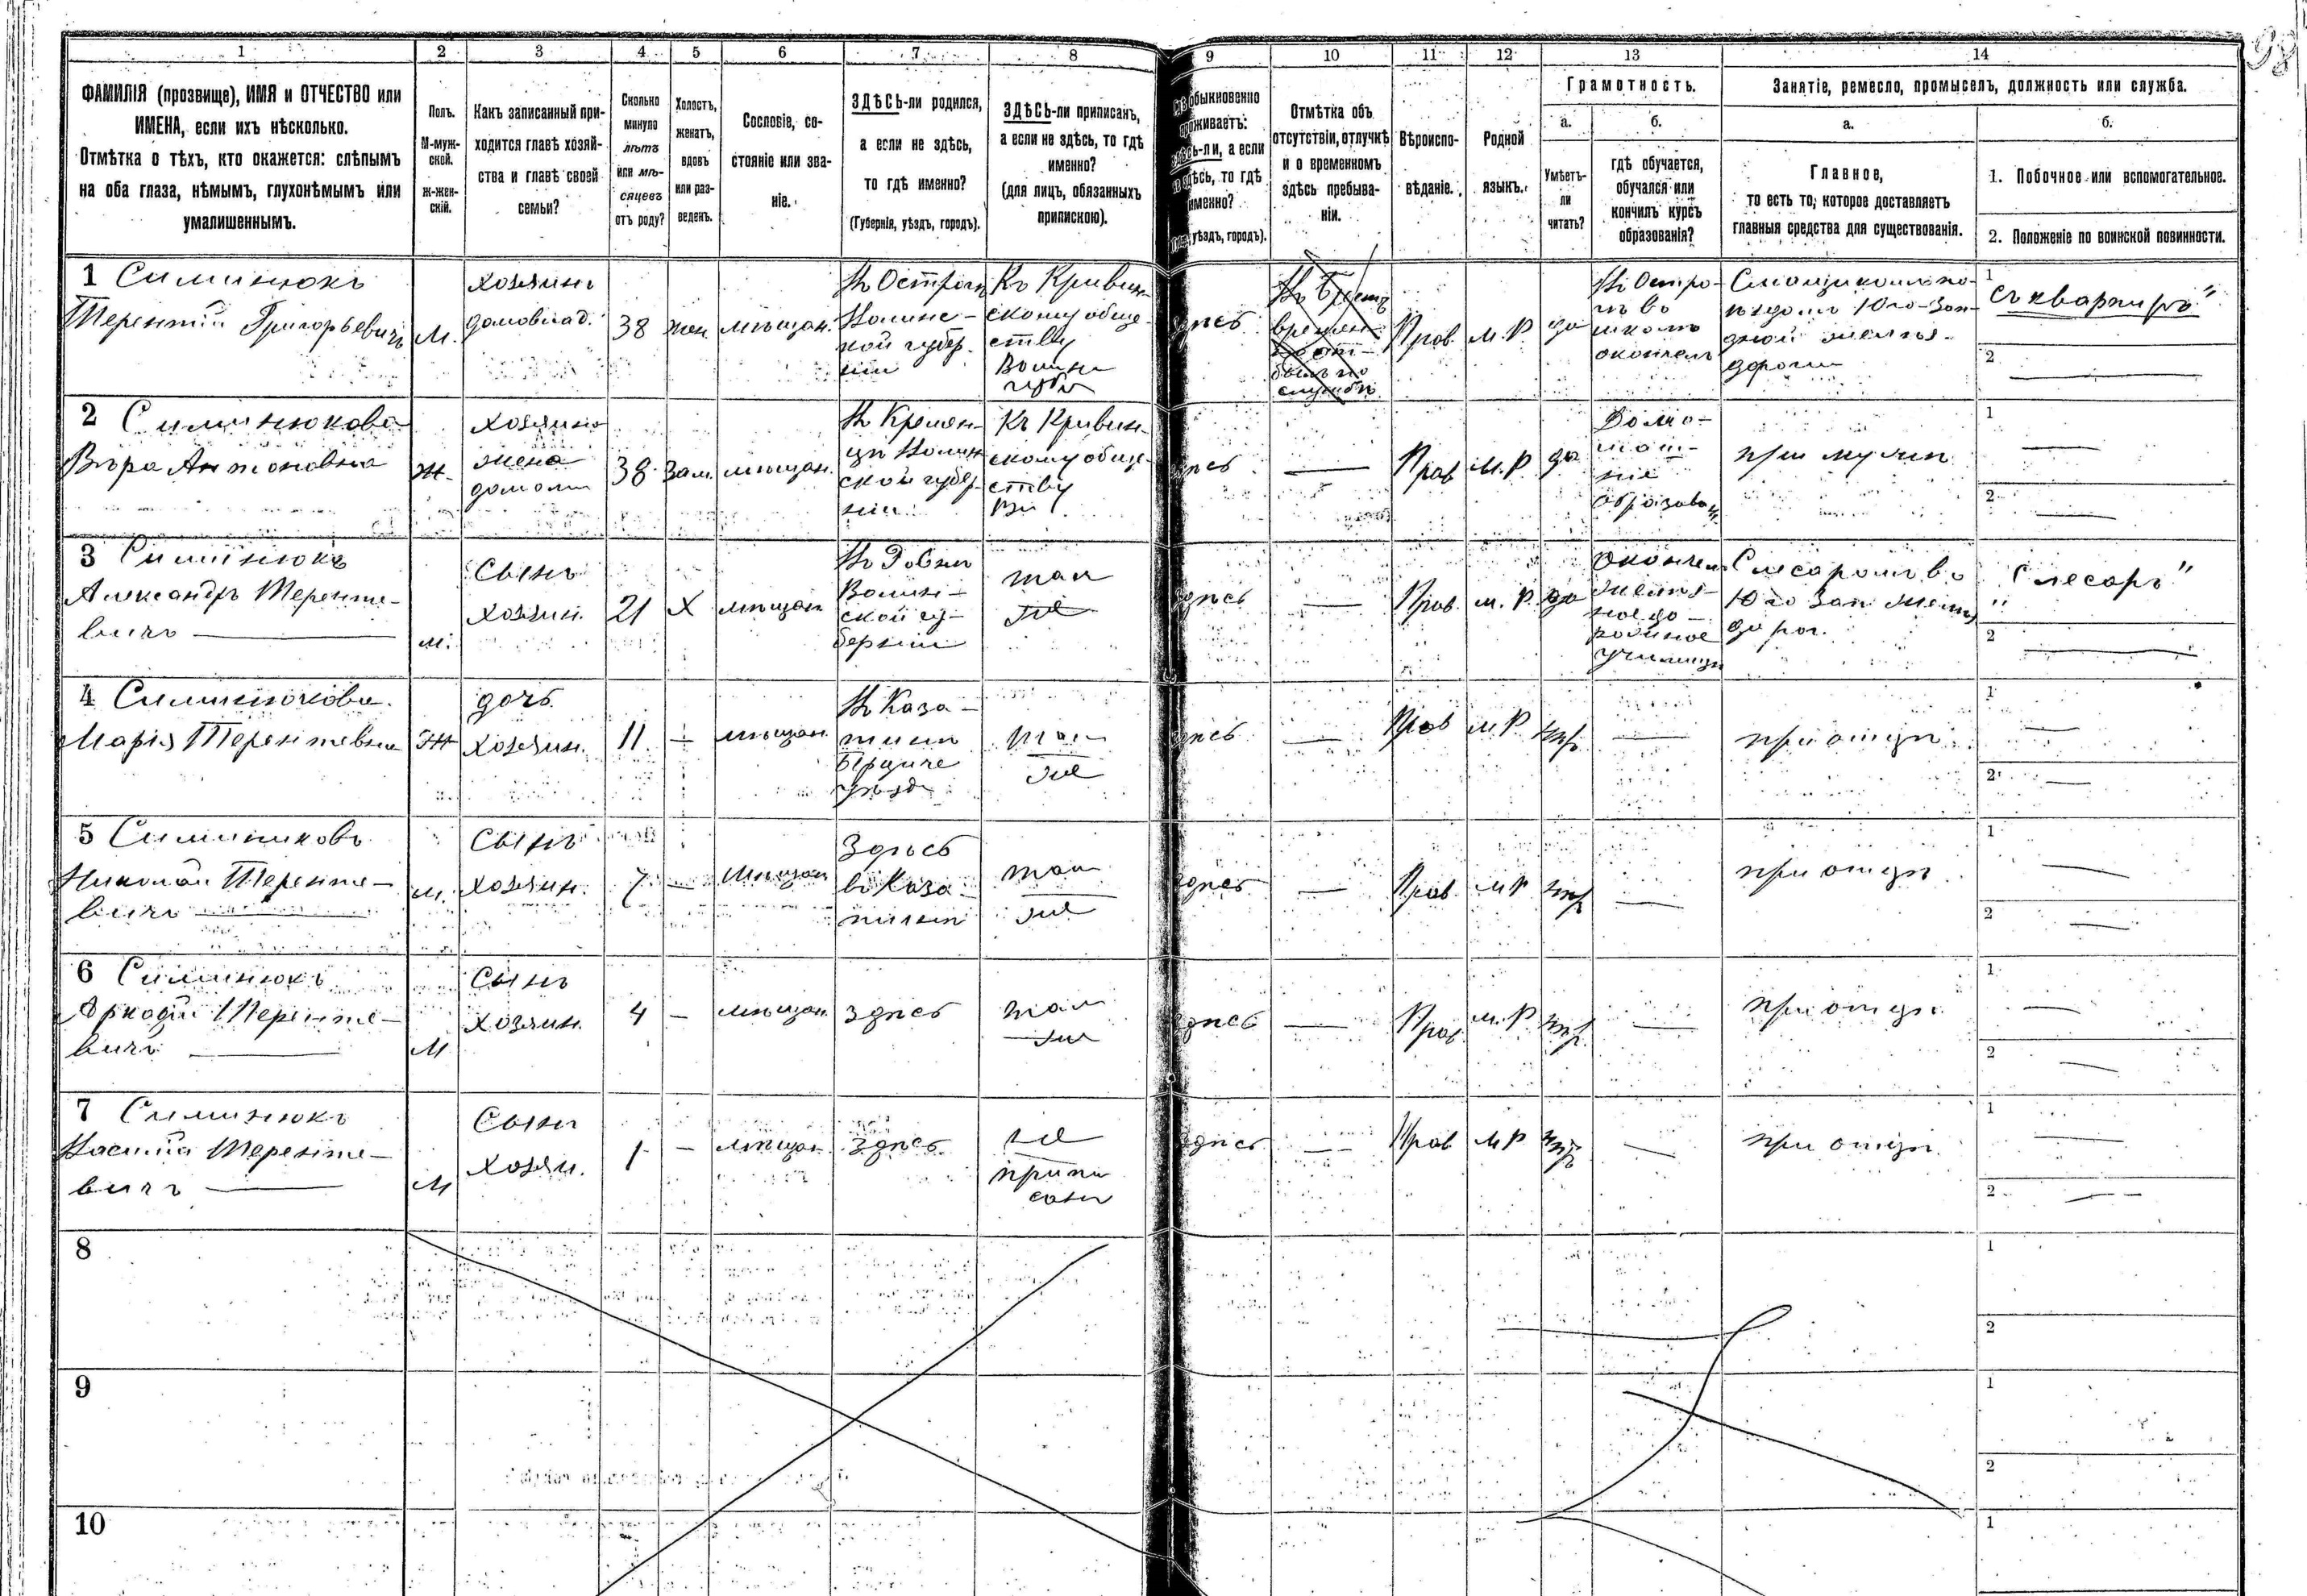 98
1 2 3 4 5 6 7 8 9 10 11 12 13 14
ФАМИЛІЯ (прозвище), ИМЯ и ОТЧЕСТВО или
ИМЕНА, если ихъ нѣсколько.
Отмѣтка о тѣхъ, кто окажется: слѣпымъ
на оба глаза, нѣмымъ, глухонѣмымъ или
умалишеннымъ.
Полъ.
М-муж-
ской.
Ж-жен-
скій.
Какъ записанный при-
ходится главѣ хозяй-
ства и главѣ своей
семьи?
Сколько
минуло
лѣтъ
или мѣ-
сяцевъ
отъ роду?
Холостъ,
женатъ,
вдовъ
или раз-
веденъ.
Сословіе, со-
стояніе или зва-
ніе.
ЗДѢСЬ-ли родился,
а если не здѣсь,
то гдѣ именно?
(Губернія, уѣздъ, городъ).
ЗДѢСЬ-ли приписанъ,
а если не здѣсь, то гдѣ
именно?
(для лицъ, обязанныхъ
припискою).
обыкновенно
проживаетъ:
здѣсь-ли, а если
не здѣсь, то гдѣ
именно?
уѣздъ, городъ).
Отмѣтка объ
отсутствіи, отлучкѣ
и о временномъ
здѣсь пребыва-
ніи.
Вѣроиспо-
вѣданіе.
Родной
языкъ.
Грамотность.
а.
Умѣетъ-
ли
читать?
б.
гдѣ обучается,
обучался или
кончилъ курсъ
образованія?
Занятіе, ремесло, промыселъ, должность или служба.
а.
Главное,
то есть то, которое доставляетъ
главныя средства для существованія.
б.
1. Побочное или вспомогательное.
2. Положеніе по воинской повинности.
1 Симинюкъ
Терентій Григорьевичъ
М.
хозяинъ
домовлад.
38
жен.
мѣщан.
Въ Острогѣ
Волынс-
кой губер-
ніи
Къ Кривин-
скому обще-
ству
Волын.
губ.
здѣсь
Прав.
М. Р
да
Въ Остро-
гѣ во
школѣ
окончилъ
Смазчикомъ по-
ѣздовъ Юго-Зап-
дной желѣз.
дороги
1
2
2 Симинюкова
Вѣра Антоновна
Ж.
хозяина
жена
38
Зам.
мѣщан.
Въ Кремен-
цѣ Волын
ской губер-
ніи
Къ Кривин-
скому обще-
ству
здѣсь
Прав
М. Р
да
Домо-
образован
при мужѣ
1
2
3 Симинюкъ
Александръ Теренте-
вичъ
М.
Сынъ
хозяин.
21
Х
мѣщан
Въ Ровнѣ
Волын-
ской гу-
берніи
там
же
здѣсь
Прав.
М. Р.
да
окончил
желѣз-
ное до-
рожное
училище
Слесаромъ во
Юго Зап желѣз
дорог.
1
„Слесарь"
2
4 Симинюкова
Марія Терентевна
Ж
дочь
хозяин.
11
мѣщан
Въ Каза-
тинѣ
Бердиче
уѣзда
там
же
здѣсь
Прав
М Р
при отцѣ
1
2
5 Симинюковъ
Николай Теренте-
вичъ
М.
Сынъ
хозяин.
7
мѣщан
Здѣсь
в Каза
тинѣ
там
же
здѣсь
Прав.
М Р
при отцѣ
1
2
6 Симинюкъ
Аркадій Теренте-
вичъ
М
Сынъ
хозяин.
4
мѣщан
здѣсь
там
же
здѣсь
Прав.
М. Р
при отцѣ
1
2
7 Симинюкъ
Василій Теренте-
вичъ
М
Сынъ
хозяи.
1
мѣщан
здѣсь
не
припи
санъ
здѣсь
Прав
М Р
при отцѣ
1
2
8
1
2
9
1
2
10
1